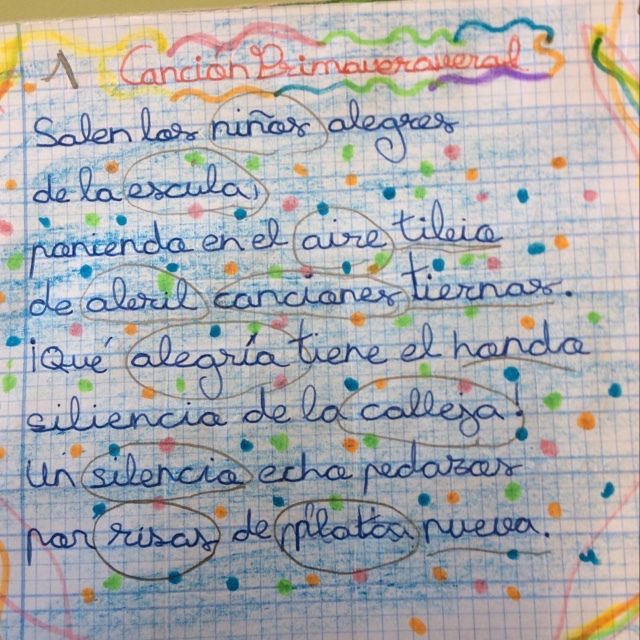 1 Canción Primaveraveral
Salen los niños alegres
de la escula,
poniendo en el aire tileio
de aleril canciones tiernas.
¡Qué alegría tiene el hondo
siliencia de la calleja!
Un silencio echo pedazos
por risas de platón nueva.